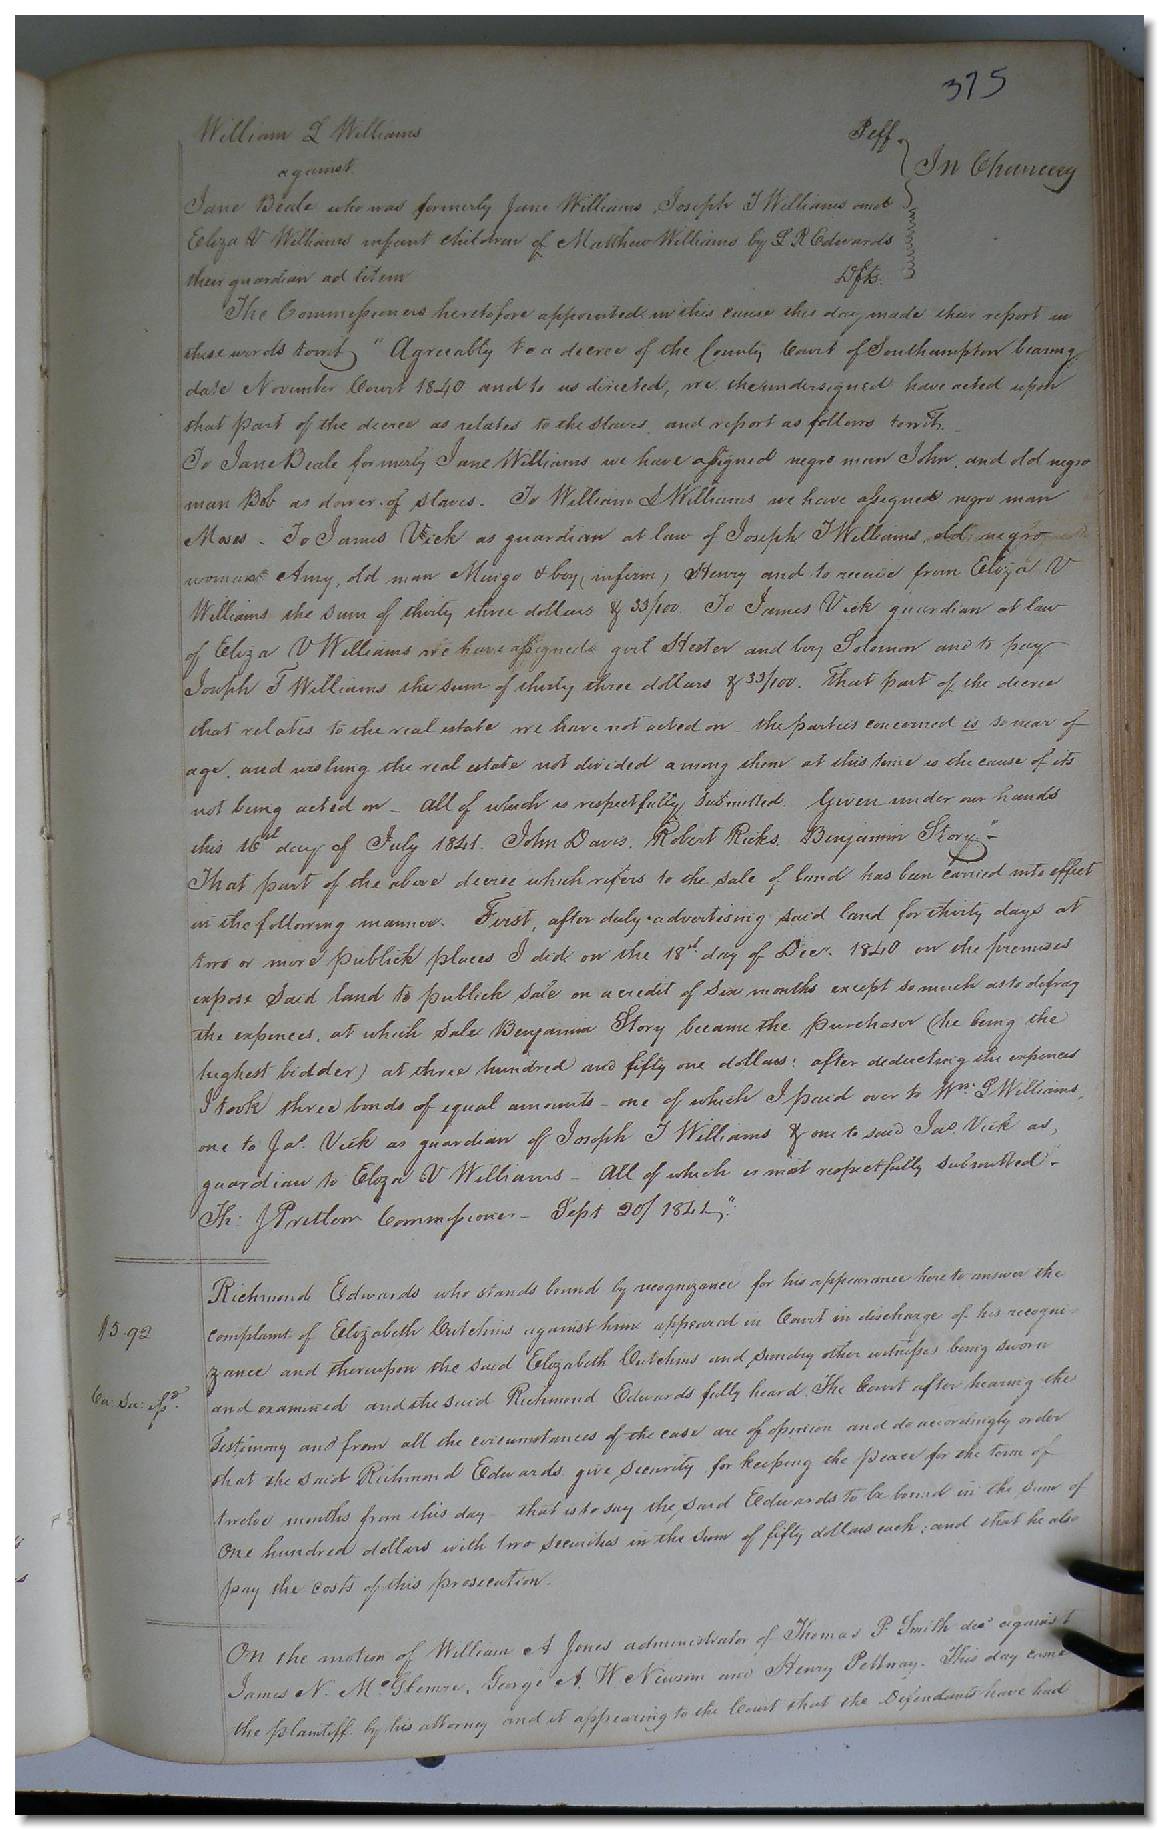 375
William L Williams Plff
In Chancery
against
Jane Beale who was formerly Jane Williams, Joseph T Williams and
Eliza V Williams infant children of Matthew Williams by L R Edwards
their guardian ad litem Dfts.
The Commissioners heretofore appointed in this cause this day made their report in
these words towit, "Agreeably to a decree of the County Court of Southampton bearing
date November Court 1840 and to us directed, we the undersigned have acted upon
that part of the decree as relates to the slaves, and report as follows towit,
To Jane Beale formerly Jane Williams we have assigned negro man John, and old negro
man Bob as dower of slaves. To William L Williams we have assigned negro man
Moses - To James Vick as guardian at law of Joseph T Williams, old negro
woman Amy, old man Mingo & boy (infirm) Henry and to receive from Eliza V
Williams the sum of thirty three dollars & 33/100. To James Vick guardian at law
of Eliza V Williams we have assigned girl Hester and boy Solomon and to pay
Joseph T Williams the sum of thirty three dollars & 33/100. That part of the decree
that relates to the real estate we have not acted on - the parties concerned is so near of
age, and wishing the real estate not divided among them at this time is the cause of its
not being acted on - all of which is respectfully submitted. Given under our hands
this 16th day of July 1841. John Davis. Robert Ricks. Benjamin Story" -
That part of the above decree which refers to the sale of land has been carried into effect
in the following manner. First, after duly advertising said land for thirty days at
two or more publick places I did on the 18th day of Decr. 1840 on the premises
expose said land to publick sale on a credit of six months except so much as to defray
the expences, at which sale Benjamin Story became the purchaser (he being the
highest bidder) at three hundred and fifty one dollars: after deducting the expences
I took three bonds of equal amounts - one of which I paid over to Wm. L Williams,
one to Jas. Vick as guardian of Joseph T Williams & one to said Jas. Vick as,
guardian to Eliza V Williams - All of which is most respectfully submitted -
Th: J Pretlow Commissioner - Sept 20/1841":
Richmond Edwards who stands bound by recognizance for his appearance here to answer the
$3.92 complaint of Elizabeth Cutchins against him appeared in Court in discharge of his recogni-
zance and thereupon the said Elizabeth Cutchins and sundry other witnesses being sworn
Ca: Sa: and examined and the said Richmond Edwards fully heard. The Court after hearing the
Testimony and from all the circumstances of the case are of opinion and do accordingly order
that the said Richmond Edwards give security for keeping the peace for the term of
twelve months from this day - that is to say the said Edwards to be bound in the sum of
One hundred dollars with two securities in the sum of fifty dollars each; and that he also
pay the costs of this prosecution.
On the motion of William A Jones administrator of Thomas P Smith decd against
James N. McGlemre, George A. W Newsom and Henry Pettway. This day came
the plaintiff by his attorney and it appearing to the Court that the Defendants have had